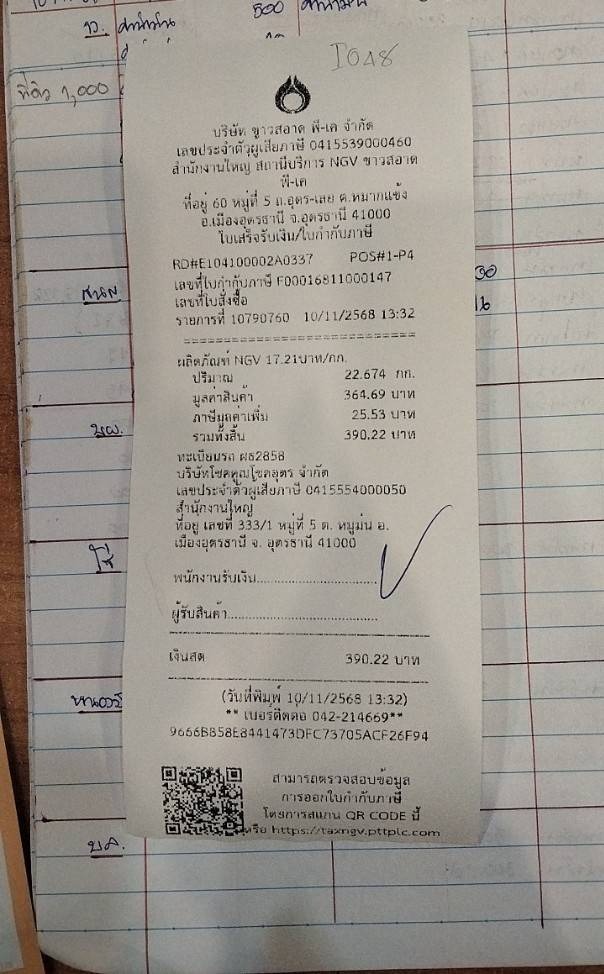 500
ที่ดิว 1,000
I048
บริษัท ขาวสอาด พี-เค จำกัด
เลขประจำตัวผู้เสียภาษี 0415539000460
สำนักงานใหญ่ สถานีบริการ NGV ขาวสอาด
พี-เค
ที่อยู่ 60 หมู่ที่ 5 ถ.อุดร-เลย ต.หมากแข้ง
อ.เมืองอุดรธานี จ.อุดรธานี 41000
ใบเสร็จรับเงิน/ใบกำกับภาษี
RD#E104100002A0337 POS#1-P4
เลขที่ใบกำกับภาษี F00016811000147
เลขที่ใบสั่งซื้อ
รายการที่ 10790760 10/11/2568 13:32
ผลิตภัณฑ์ NGV 17.21บาท/กก.
ปริมาณ 22.674 กก.
มูลค่าสินค้า 364.69 บาท
ภาษีมูลค่าเพิ่ม 25.53 บาท
รวมทั้งสิ้น 390.22 บาท
ทะเบียนรถ ผธ2858
บริษัทโชคคูณโชคอุดร จำกัด
เลขประจำตัวผู้เสียภาษี 0415554000050
สำนักงานใหญ่
ที่อยู่ เลขที่ 333/1 หมู่ที่ 5 ต. หมูม่น อ.
เมืองอุดรธานี จ. อุดรธานี 41000
พนักงานรับเงิน..............................
ผู้รับสินค้า.....................................
เงินสด 390.22 บาท
(วันที่พิมพ์ 10/11/2568 13:32)
** เบอร์ติดต่อ 042-214669**
9666B858E8441473DFC73705ACF26F94
สามารถตรวจสอบข้อมูล
การออกใบกำกับภาษี
โดยการสแกน QR CODE นี้
หรือ https://taxngv.pttplc.com